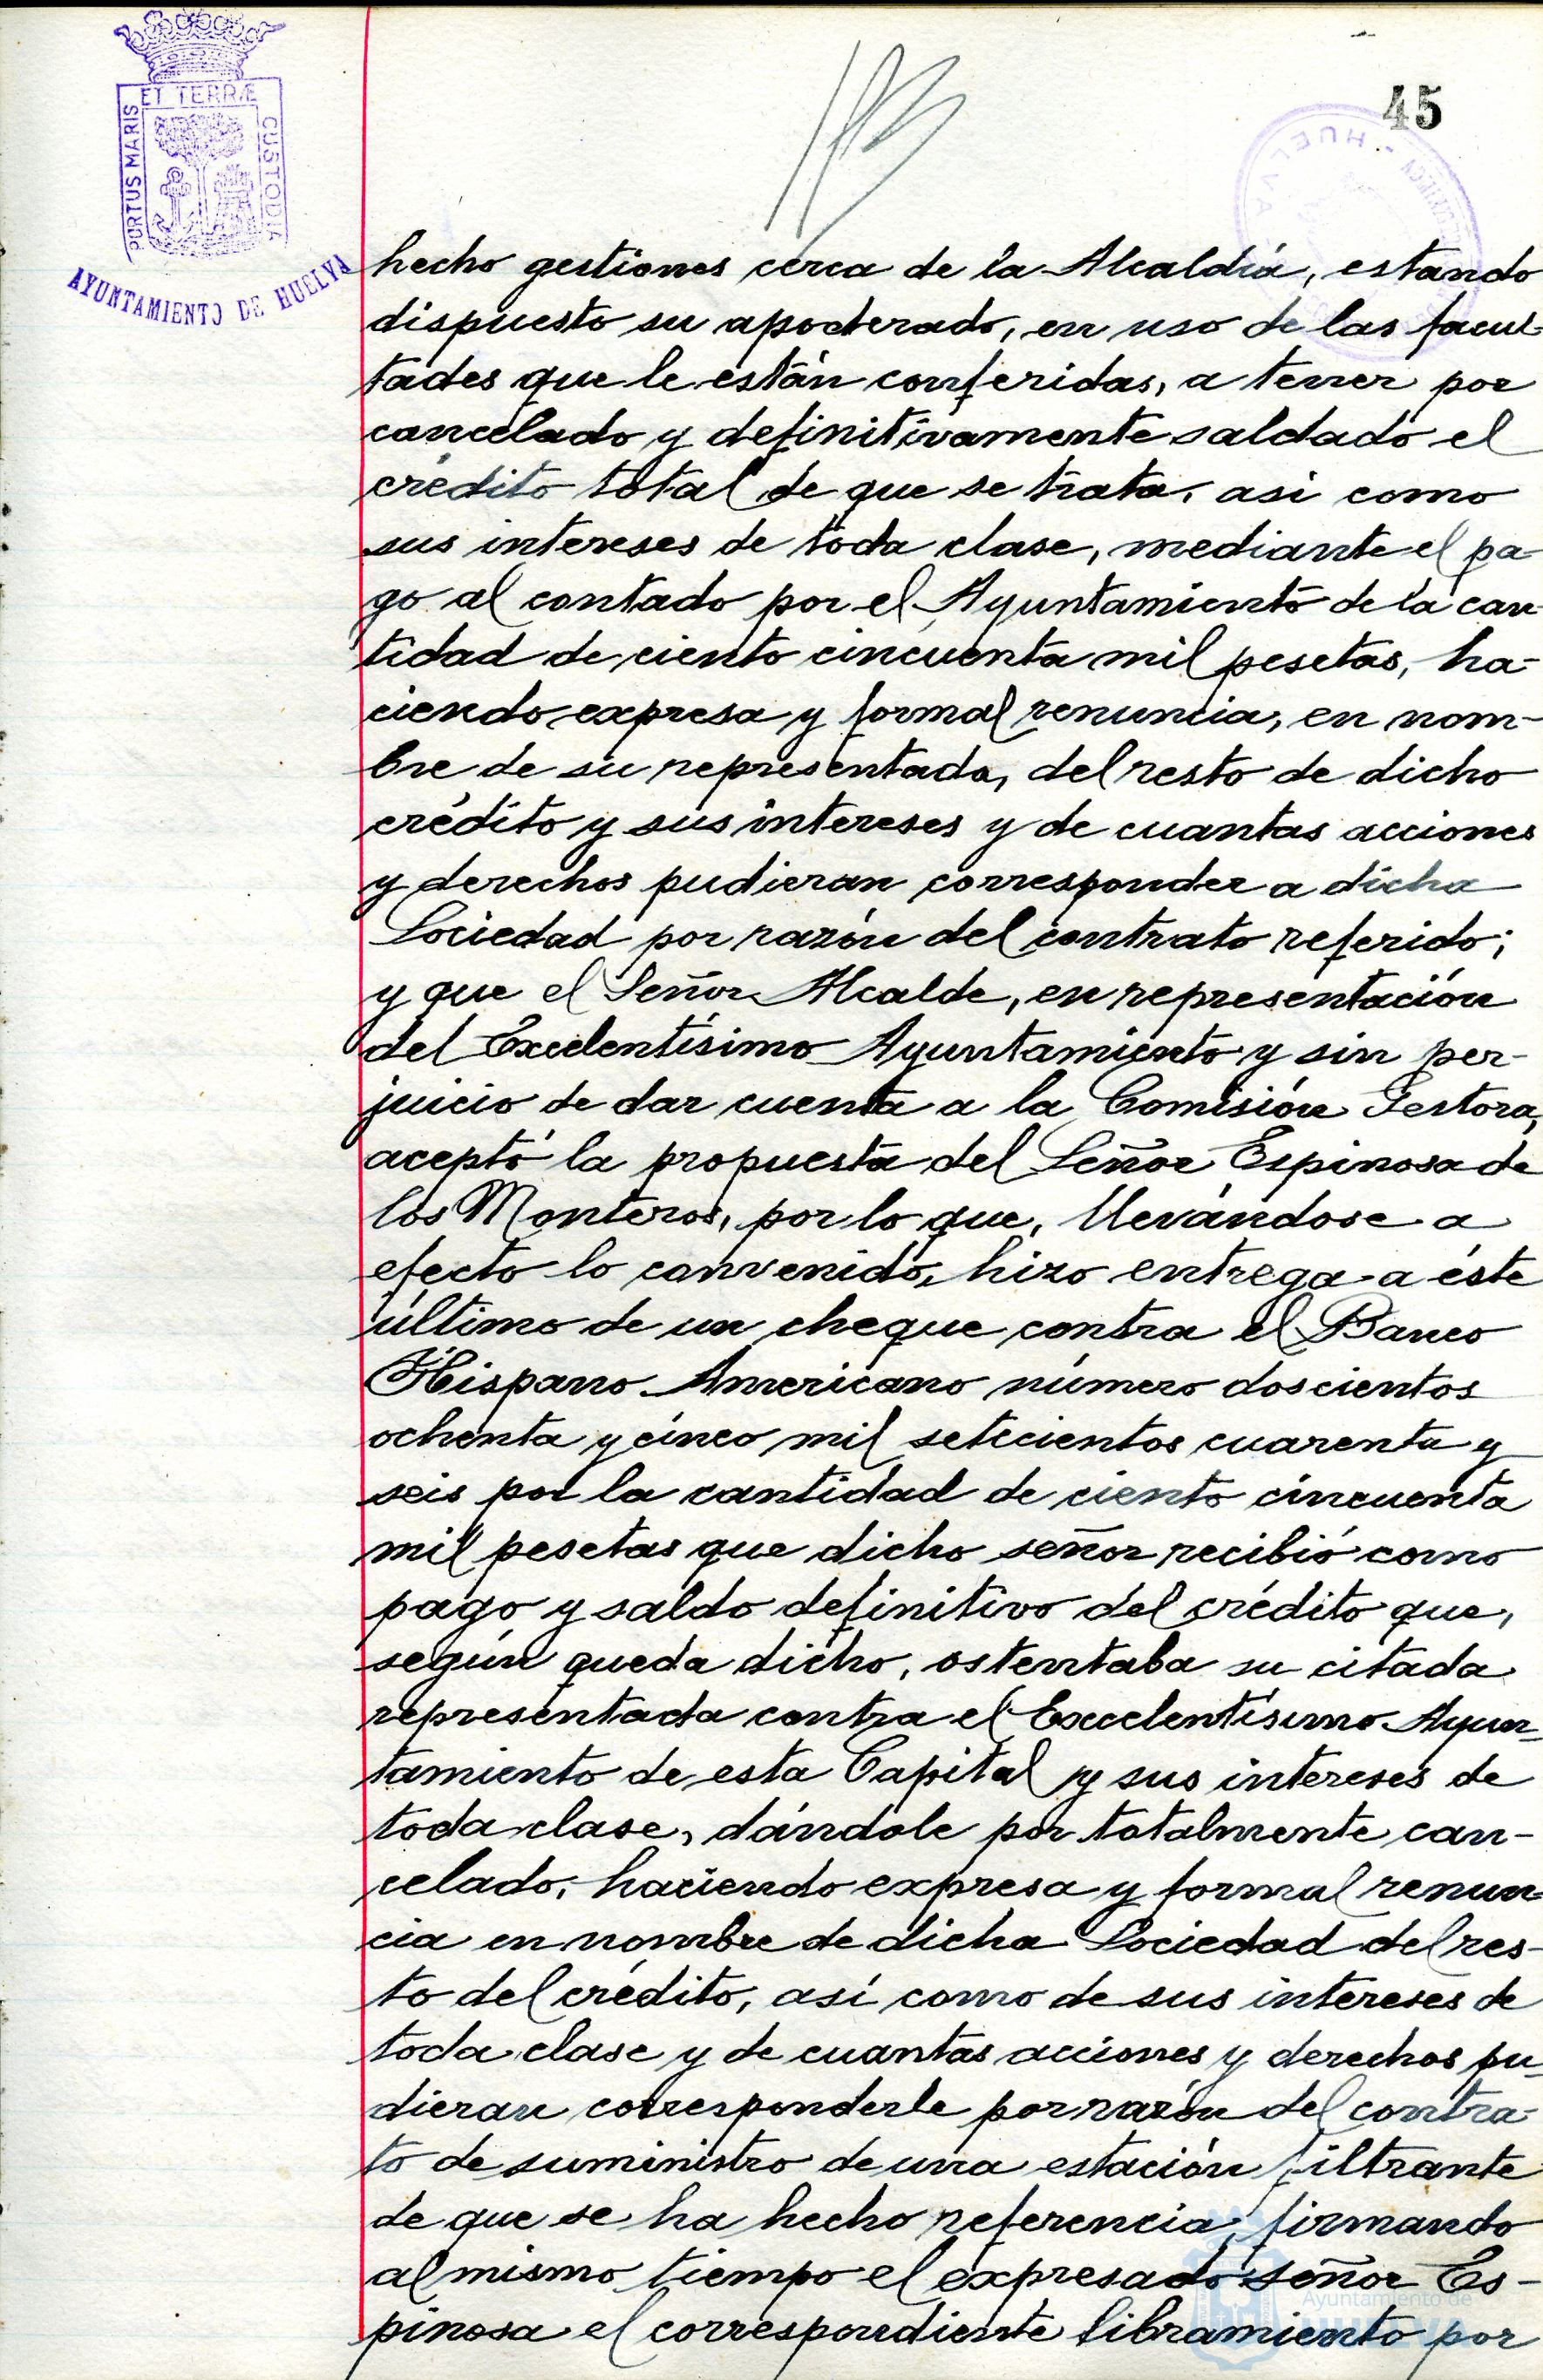 45
PORTUS MARIS ET TERRÆ CUSTODIA
AYUNTAMIENTO DE HUELVA
HUELVA
hecho gestiones cerca de la Alcaldía, estando
dispuesto su apoderado, en uso de las facul-
tades que le están conferidas, a tener por
cancelado y definitivamente saldado el
crédito total de que se trata, asi como
sus intereses de toda clase, mediante el pa-
go al contado por el Ayuntamiento de la can-
tidad de ciento cincuenta mil pesetas, ha-
ciendo expresa y formal renuncia, en nom-
bre de su representada, del resto de dicho
crédito y sus intereses y de cuantas acciones
y derechos pudieran corresponder a dicha
Sociedad por razón del contrato referido;
y que el Señor Alcalde, en representación
del Excelentísimo Ayuntamiento y sin per-
juicio de dar cuenta a la Comisión Gestora,
aceptó la propuesta del Señor Espinosa de
los Monteros, por lo que, llevándose a
efecto lo convenido, hizo entrega a éste
último de un cheque contra el Banco
Hispano Americano número doscientos
ochenta y cinco mil setecientos cuarenta y
seis por la cantidad de ciento cincuenta
mil pesetas que dicho señor recibió como
pago y saldo definitivo del crédito que,
según queda dicho, ostentaba su citada
representada contra el Excelentísimo Ayun-
tamiento de esta Capital y sus intereses de
toda clase, dándole por totalmente can-
celado, haciendo expresa y formal renun-
cia en nombre de dicha Sociedad del res-
to del crédito, así como de sus intereses de
toda clase y de cuantas acciones y derechos pu-
dieran corresponderle por razón del contra-
to de suministro de una estación filtrante
de que se ha hecho referencia, firmando
al mismo tiempo el expresado señor Es-
pinosa el correspondiente libramiento por
Ayuntamiento de
HUELVA